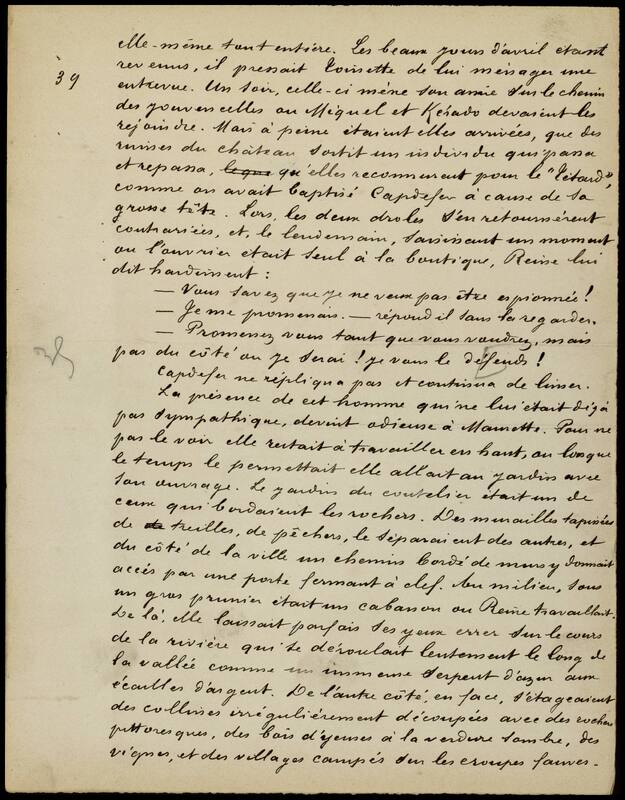 elle-même tout entière. Les beaux jours d'avril étant
39
revenus, il pressait Toinette de lui ménager une
entrevue. Un soir, celle-ci mène son amie sur le chemin
des jouvencelles ou Miquel et Kérado devaient les
rejoindre. Mais à peine étaient elles arrivées, que des
ruines du château sortit un individu qui passa
et repassa, qu'elles reconnurent pour le "Tétard",
comme on avait baptisé Capdefer à cause de sa
grosse tête. Lors, les deux droles s'en retournérent
contrariées, et, le lendemain, saisissant un moment
ou l'ouvrier était seul à la boutique, Reine lui
dit hardiment :
— Vous savez que je ne veux pas être espionnée !
— Je me promenais. — répond il sans la regarder.
— Promenez vous tant que vous voudrez, mais
pas du côté ou je serai ! je vous le défends !
Capdefer ne répliqua pas et continua de limer.
La présence de cet homme qui ne lui était déjà
pas sympathique, devint odieuse à Mamette. Pour ne
pas le voir elle restait à travailler en haut, ou lorsque
le temps le permettait elle allait au jardin avec
son ouvrage. Le jardin du coutelier était un de
ceux qui bordaient les rochers. Des murailles tapissées
de treilles, de pêchers, le séparaient des autres, et
du côté de la ville un chemin bordé de murs y donnait
accés par une porte fermant à clef. Au milieu, sous
un gros prunier était un cabanon ou Reine travaillait.
De là, elle laissait parfois ses yeux errer sur le cours
de la rivière qui se déroulait lentement le long de
la vallée comme un immense serpent d'azur aux
écailles d'argent. De l'autre côté, en face, s'étageaient
des collines irrégulièrement découpées avec des rochers
pittoresques, des bois d'yeuses à la verdure sombre, des
vignes, et des villages campés sur les croupes fauves.